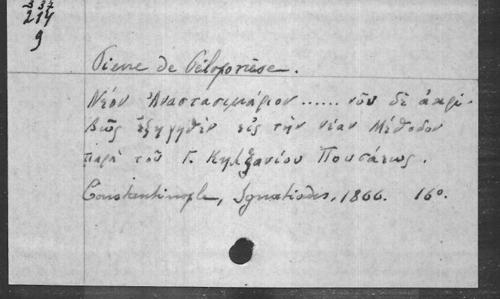 214
9
Pierre de Péloponèse.
Νέον Ἀναστασιμάριον ...... νῦν δὲ ἀκρι-
βῶς ἐξηγηθὲν εἰς τὴν νέαν Μέθοδον
παρὰ τοῦ Γ.
Constantinople, Ignatiades, 1866. 16°.